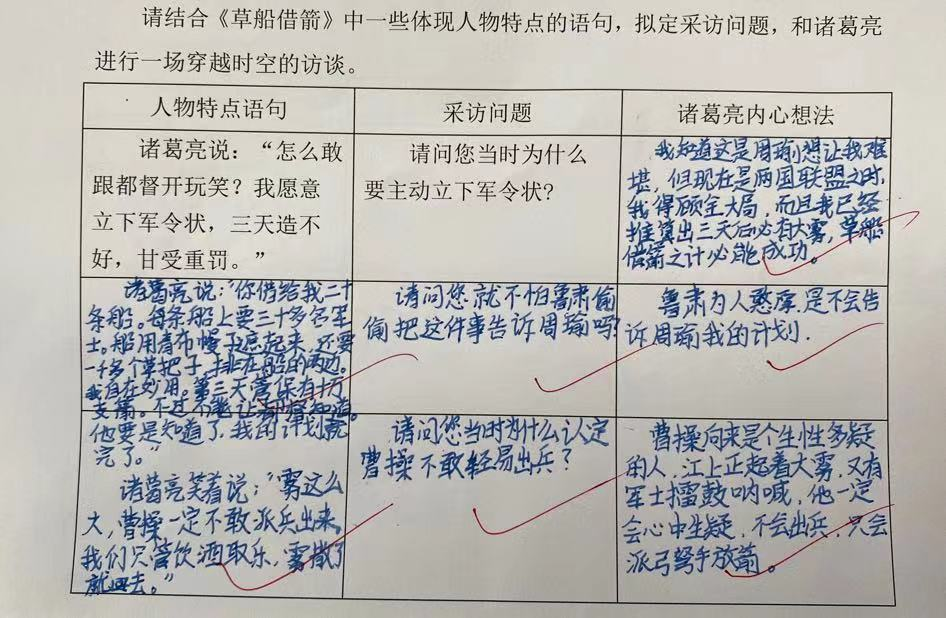 请结合《草船借箭》中一些体现人物特点的语句，拟定采访问题，和诸葛亮
进行一场穿越时空的访谈。
人物特点语句
采访问题
诸葛亮内心想法
诸葛亮说：“怎么敢
跟都督开玩笑？我愿意
立下军令状，三天造不
好，甘受重罚。”
请问您当时为什么
要主动立下军令状?
我知道这是周瑜想让我难
堪，但现在是两国联盟之时，
我得顾全大局，而且我已经
推算出三天后必有大雾，草船
借箭之计必能成功。
诸葛亮说：“你借给我二十
条船。每条船上要三十多名军
士。船用青布幔子遮起来，还要
一千多个草把子，排在船的两边。
我自有妙用。第三天管保有十万
支箭。不过不能让都督知道。
他要是知道了，我的计划就
完了。”
请问您就不怕鲁肃偷
偷把这件事告诉周瑜吗？
鲁肃为人憨厚，是不会告
诉周瑜我的计划.
诸葛亮笑着说：“雾这么
大，曹操一定不敢派兵出来，
我们只管饮酒取乐，雾散了
就回去。”
请问您当时为什么认定
曹操不敢轻易出兵？
曹操向来是个生性多疑
的人，江上正起着大雾，又有
军士擂鼓呐喊，他一定
会心中生疑，不会出兵，只会
派弓弩手放箭。